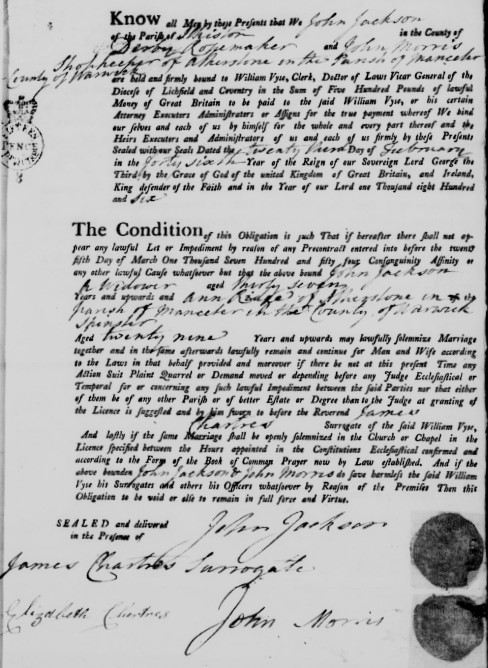 KNOW all Men by these Presents that We John Jackson
of the Parish of Shirston in the County of
Derby Ropemaker and John Morris
Shopkeeper of Atherstone in the Parish of Manceter
County of Warwick
are held and firmly bound to William Vyse, Clerk, Doctor of Laws Vicar General of the
Diocese of Lichfield and Coventry in the Sum of Five Hundred Pounds of lawful
Money of Great Britain to be paid to the said William Vyse, or his certain
Attorney Executors Administrators or Assigns for the true payment whereof We bind
our selves and each of us by himself for the whole and every part thereof and the
Heirs Executors and Administrators of us and each of us firmly by these Presents
Sealed with our Seals Dated the twenty third Day of February
in the forty sixth Year of the Reign of our Sovereign Lord George the
Third by the Grace of God of the united Kingdom of Great Britain, and Ireland,
King defender of the Faith and in the Year of our Lord one Thousand eight Hundred
and Six
The Condition of this Obligation is such That if hereafter there shall not ap
pear any lawful Let or Impediment by reason of any Precontract entered into before the twenty
fifth Day of March One Thousand Seven Hundred and fifty four Consanguinity Affinity or
any other lawful Cause whatsoever but that the above bound John Jackson
a Widower aged thirty seven
Years and upwards and Ann of in the
Parish of Manceter in the County of Warwick
Spinster
Aged twenty nine Years and upwards may lawfully solemnize Marriage
together and in the same afterwards lawfully remain and continue for Man and Wife according
to the Laws in that behalf provided and moreover if there be not at this present Time any
Action Suit Plaint Quarrel or Demand moved or depending before any Judge Ecclesiastical or
Temporal for or concerning any such lawful Impediment between the said Parties nor that either
of them be of any other Parish or of better Estate or Degree than to the Judge at granting of
the Licence is suggested and by him sworn to before the Reverend James
Chartres Surrogate of the said William Vyse,
And lastly if the same Marriage shall be openly solemnized in the Church or Chapel in the
Licence specified between the Hours appointed in the Constitutions Ecclesiastical confirmed and
according to the Form of the Book of Common Prayer now by Law established. And if the
above bounden John Jackson & John Morris do save harmless the said William
Vyse his Surrogates and others his Officers whatsoever by Reason of the Premises Then this
Obligation to be void or else to remain in full force and Virtue.
SEALED and delivered
in the Presence of
John Jackson
James Chartres Surrogate
Elizabeth Chartres
John Morris